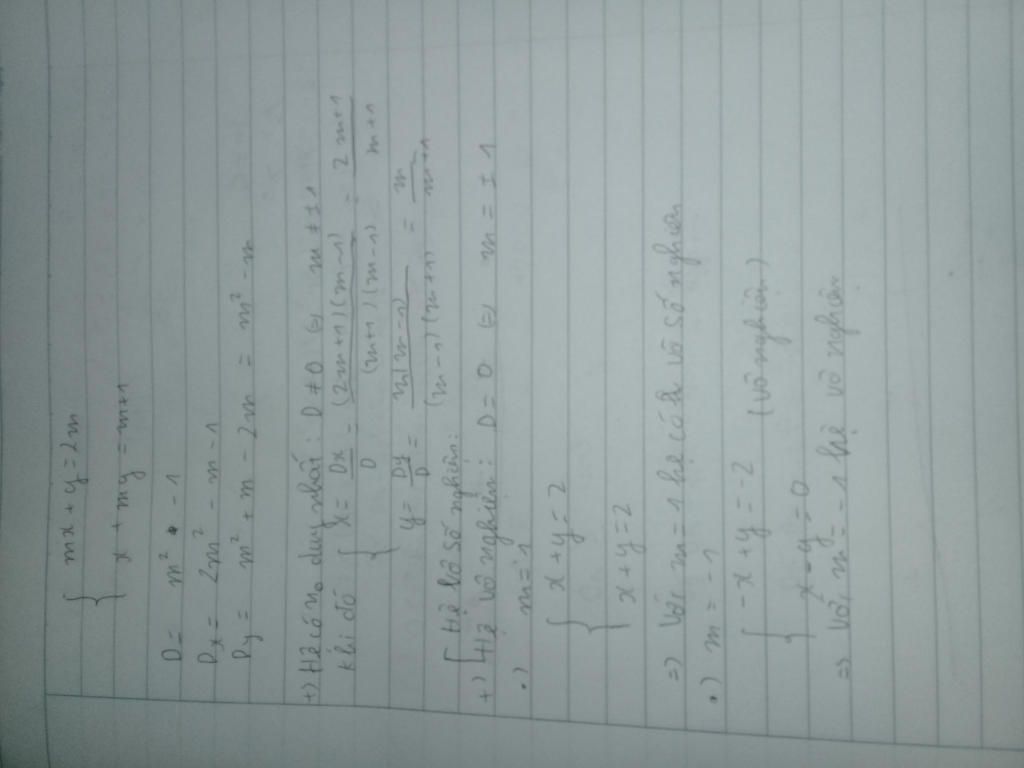 { mx + y = 2m
{ x + my = m+1
D = m² - 1
Dx = 2m² - m - 1
Dy = m² + m - 2m = m² - m
+) Hệ có no duy nhất : D ≠ 0 ⇔ m ≠ ±1
Khi đó { x = Dx/D = (2m+1)(m-1)/(m+1)(m-1) = 2m+1/m+1
{ y = Dy/D = m(m-1)/(m-1)(m+1) = m/m+1
+) [ Hệ vô số nghiệm:
[ Hệ vô nghiệm: D = 0 ⇔ m = ±1
•) m = 1
{ x + y = 2
{ x + y = 2
=) Với m = 1 hệ có vô số nghiệm
•) m = -1
{ -x + y = -2 (vô nghiệm)
{ x - y = 0
=) Với m = -1 hệ vô nghiệm